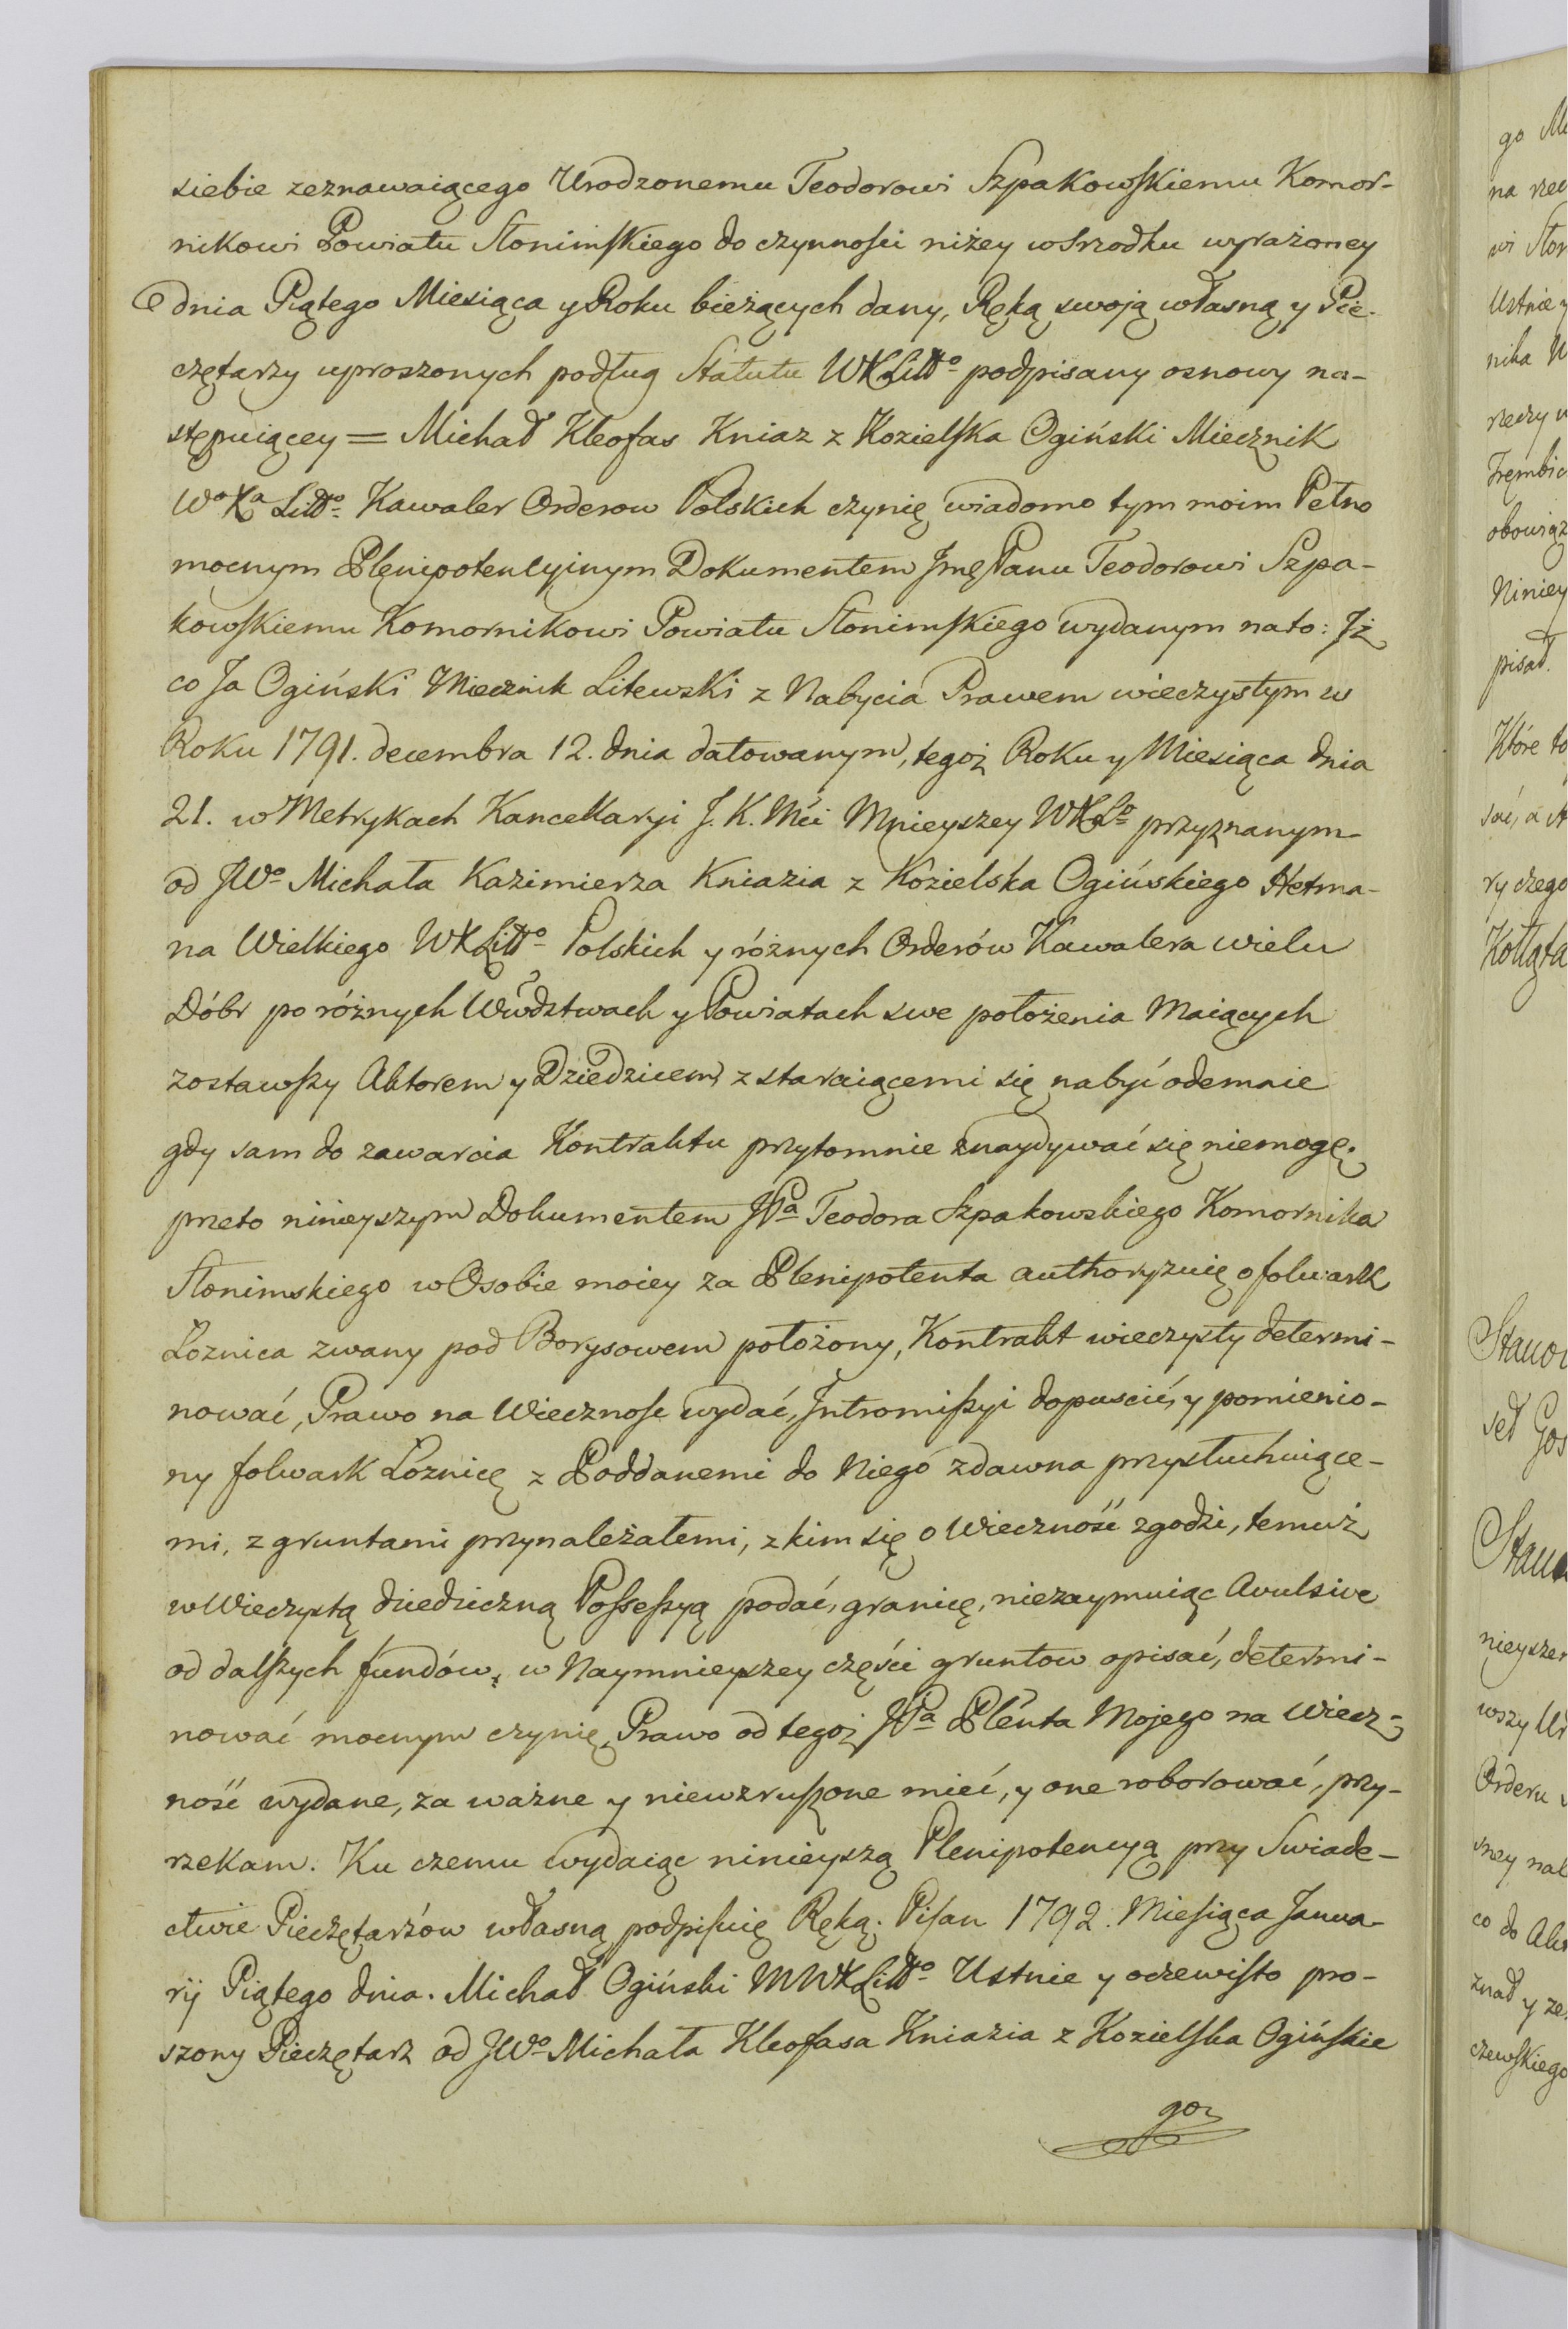 siebie zeznawaiącego Urodzonemu Teodorowi Szpakowskiemu Komor-
nikowi Powiatu Słonimskiego do czynności niżey wsrzodku wyrażoney
dnia Piątego Miesiąca y Roku bieżących dany, Ręką swoją własną y Pie-
czętarzy uproszonych podług Statutu WXLittº podpisany osnowy na-
stępuiącey = Michał Kleofas Kniaz z Kozielska Ogiński Miecznik
Wº Xa Littº Kawaler Orderow Polskich czynię wiadomo tym moim Pełno
mocnym Plenipotencyinym Dokumentem Jmę Panu Teodorowi Szpa-
kowskiemu Komornikowi Powiatu Słonimskiego wydanym nato: Jż
co Ja Ogiński Miecznik Litewski z Nabycia Prawem wieczystym w
Roku 1791. decembra 12. dnia datowanym, tegoż Roku y Miesiąca dnia
21. w Metrykach Kancellaryi J. K. Mći Mnieyszey WXLº przyznanym
od JWº Michała Kazimierza Kniazia z Kozielska Ogińskiego Hetma-
na Wielkiego WXLittº Polskich y różnych Orderów Kawalera wielu
Dóbr po różnych Wwdztwach y Powiatach swe położenia Maiących
zostawszy Aktorem y Dziedzicem z staraiącemi się nabyć odemnie
gdy sam do zawarcia Kontraktu przytomnie znaydywać się niemogę.
przeto ninieyszym Dokumentem JPa Teodora Szpakowskiego Komornika
Słonimskiego w Osobie moiey za Plenipotenta authoryzuię o folwark
Łoznica zwany pod Borysowem położony, Kontrakt wieczysty determi-
nować, Prawo na Wiecznosc wydać, Intromissyi dopuscić, y pomienio-
ny folwark Łoznicę z Poddanemi do Niego zdawna przysłuchuiące-
mi, z gruntami przynależałemi, z kim się o Wieczność zgodzi, temuż
w Wieczystą dziedziczną Possessyą podać, granicę, niezaymuiąc avulsive
od dalszych fundów, w Naymnieyszey części gruntow opisać, determi-
nować mocnym czynię, Prawo od tegoż JPa Plenta Mojego na Wiecz-
ność wydane, za ważne y niewzruszone mieć, y one roborować, przy-
rzekam. Ku czemu wydaiąc ninieyszą Plenipotencyą przy Swiade-
ctwie Pieczętarzów własną podpisuię Ręką. Pisan 1792. Miesiąca Janua-
rij Piątego dnia. Michał Ogiński MWXLittº Ustnie y oczewisto pro-
szony Pieczętarz od JWº Michała Kleofasa Kniazia z Kozielska Ogińskie
go